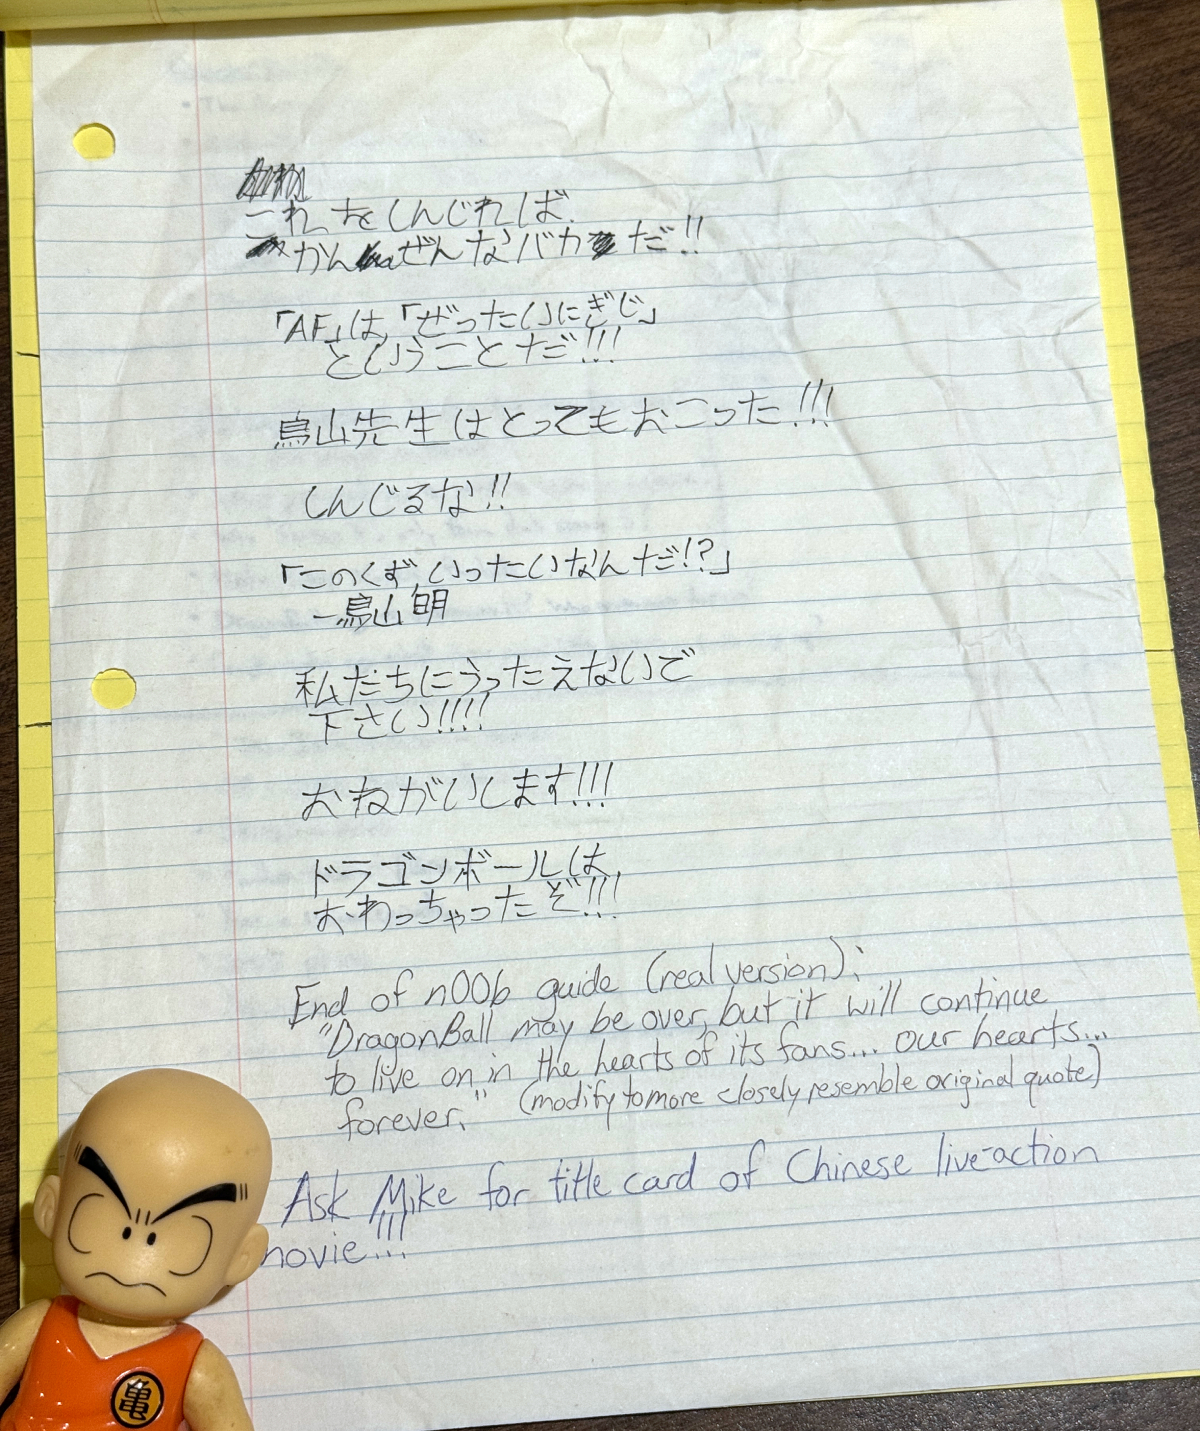 これをしんじれば、
かんぜんなバカだ!!
「AF」は、「ぜったいにぎじ」
ということだ!!!
鳥山先生はとってもおこった!!!
しんじるな!!
「このくず、いったいなんだ!?」
－鳥山明
私たちにうったえないで
下さい!!!!
おねがいします!!!
ドラゴンボールは、
おわっちゃったぞ!!!
End of n00b guide (real version):
"DragonBall may be over, but it will continue
to live on in the hearts of its fans... our hearts...
forever." (modify to more closely resemble original quote)
Ask Mike for title card of Chinese live-action
movie!!!
亀